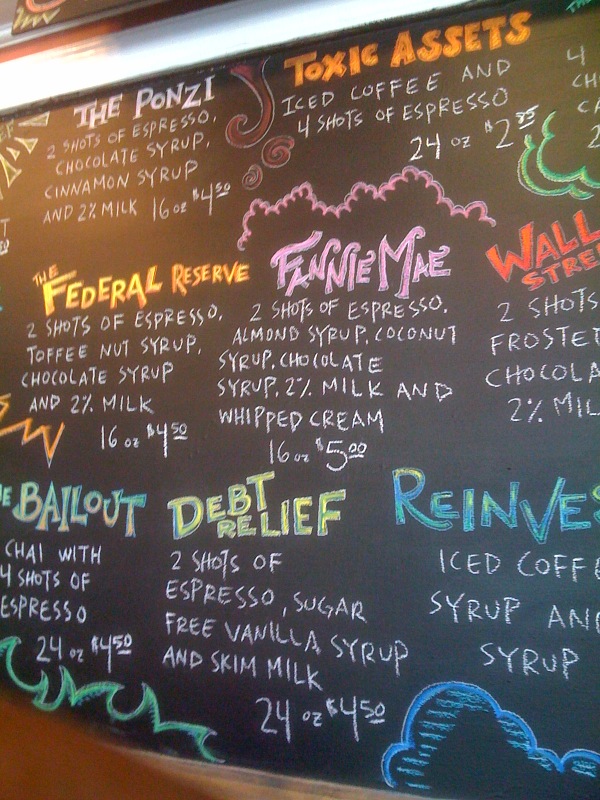 THE PONZI
2 SHOTS OF ESPRESSO,
CHOCOLATE SYRUP,
CINNAMON SYRUP
AND 2% MILK 16 oz $4.50
TOXIC ASSETS
ICED COFFEE AND
4 SHOTS OF ESPRESSO
24 oz $2.95
4
CH
CA
2
THE FEDERAL RESERVE
2 SHOTS OF ESPRESSO,
TOFFEE NUT SYRUP,
CHOCOLATE SYRUP
AND 2% MILK
16 oz $4.50
FANNIE MAE
2 SHOTS OF ESPRESSO,
ALMOND SYRUP, COCONUT
SYRUP, CHOCOLATE
SYRUP, 2% MILK AND
WHIPPED CREAM
16 oz $5.00
WALL
STREE
2 SHOTS
FROSTE
CHOCOLA
2% MIL
E BAILOUT
CHAI WITH
4 SHOTS OF
ESPRESSO
24 oz $4.50
DEBT
RELIEF
2 SHOTS OF
ESPRESSO, SUGAR
FREE VANILLA SYRUP
AND SKIM MILK
24 oz $4.50
REINVES
ICED COFFE
SYRUP AN
SYRUP